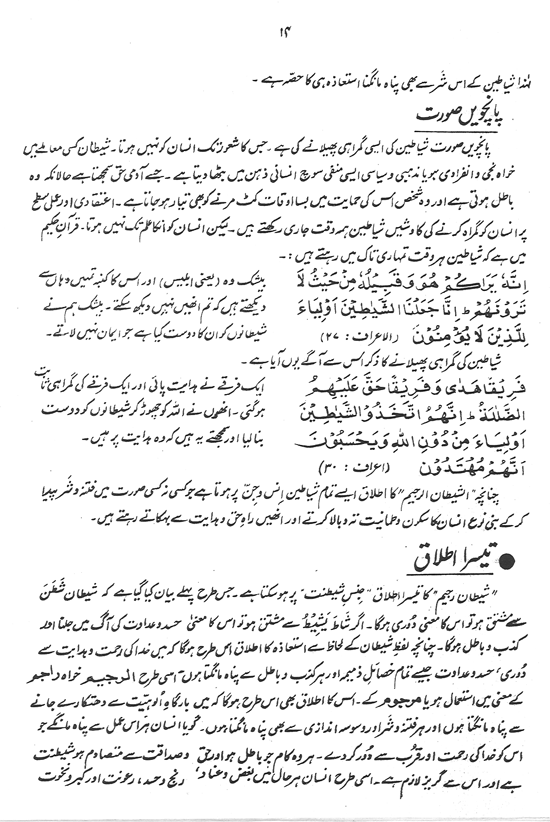 ۱۴
لہٰذا شیاطین کے اس شر سے بھی پناہ مانگنا استعاذہ ہی کا حصہ ہے ۔
پانچویں صورت
پانچویں صورت شیاطین کی ایسی گمراہی پھیلانے کی ہے ۔ جس کا شعور تک انسان کو نہیں ہوتا ۔ شیطان کسی معاملے میں
خواہ نجی و انفرادی ہو یا مذہبی و سیاسی ایسی منفی سوچ انسانی ذہن میں بٹھا دیتا ہے ۔ جسے آدمی حق سمجھتا ہے حالانکہ وہ
باطل ہوتی ہے اور وہ شخص اس کی حمایت میں بسا اوقات کٹ مرنے کو بھی تیار ہو جاتا ہے ۔ اعتقادی اور عملی سطح
پر انسان کو گمراہ کرنے کی کاوشیں شیاطین ہمہ وقت جاری رکھتے ہیں ۔ لیکن انسان کو انکا علم تک نہیں ہوتا ۔ قرآنِ حکیم
میں ہے کہ شیاطین ہر وقت تمہاری تاک میں رہتے ہیں :۔
اِنَّهٗ یَرٰىكُمْ هُوَ وَ قَبِیْلُهٗ مِنْ حَیْثُ لَا
تَرَوْنَهُمْ ؕ اِنَّا جَعَلْنَا الشَّیٰطِیْنَ اَوْلِیَآءَ
لِلَّذِیْنَ لَا یُؤْمِنُوْنَ (الاعراف : ۲۷)
بیشک وہ (یعنی ابلیس) اور اس کا کنبہ تمہیں وہاں سے
دیکھتے ہیں کہ تم انھیں نہیں دیکھ سکتے ۔ بیشک ہم نے
شیطانوں کو ان کا دوست کیا ہے جو ایمان نہیں لاتے ۔
شیاطین کی گمراہی پھیلانے کا ذکر اس سے آگے یوں آیا ہے ۔
فَرِیْقًا هَدٰی وَ فَرِیْقًا حَقَّ عَلَیْهِمُ
الضَّلٰلَةُ ؕ اِنَّهُمُ اتَّخَذُوا الشَّیٰطِیْنَ
اَوْلِیَآءَ مِنْ دُوْنِ اللّٰهِ وَ یَحْسَبُوْنَ
اَنَّهُمْ مُّهْتَدُوْنَ (اعراف : ۳۰)
ایک فرقے نے ہدایت پائی اور ایک فرقے کی گمراہی ثابت
ہو گئی ۔ انھوں نے اللہ کو چھوڑ کر شیطانوں کو دوست
بنا لیا اور سمجھتے یہ ہیں کہ وہ ہدایت پر ہیں ۔
چنانچہ "الشیطان الرجیم" کا اطلاق ایسے تمام شیاطین انس و جن پر ہوتا ہے جو کسی نہ کسی صورت میں فتنہ و شر پیدا
کر کے بنی نوع انسان کا سکون و طمانیت تہ و بالا کرتے اور انھیں راہِ حق و ہدایت سے بہکاتے رہتے ہیں ۔
● تیسرا اطلاق
"شیطان رجیم" کا تیسرا اطلاق "جنسِ شیطنت" پر ہو سکتا ہے ۔ جس طرح پہلے بیان کیا گیا ہے کہ شیطان شَطَنَ
سے مشتق ہو تو اس کا معنی دُوری ہو گا ۔ اگر شَاطَ یَشِیْطُ سے مشتق ہو تو اس کا معنی حسد و عداوت کی آگ میں جلنا اور
کذب و باطل ہو گا ۔ چنانچہ لفظِ شیطان کے لحاظ سے استعاذہ کا اطلاق اس طرح ہو گا کہ میں خدا کی رحمت و ہدایت سے
دُوری ، حسد و عداوت جیسے تمام خصائلِ ذمیمہ اور ہر کذب و باطل سے پناہ مانگتا ہوں اسی طرح الرجیم خواہ راجم
کے معنی میں استعمال ہو یا مرجوم کے ۔ اس کا اطلاق بھی اس طرح ہو گا کہ میں بارگاہِ اُلوہیت سے دھتکارے جانے
سے پناہ مانگتا ہوں اور ہر فتنہ و شر اور وسوسہ اندازی سے بھی پناہ مانگتا ہوں ۔ گویا انسان ہر اس عمل سے پناہ مانگے جو
اس کو خدا کی رحمت اور قُرب سے دُور کر دے ۔ ہر وہ کام جو باطل ہو اور حق و صداقت سے متصادم ہو شیطنت
ہے اور اس سے گریز لازم ہے ۔ اسی طرح انسان ہر حال میں بغض و عناد ، رنج و حسد ، رعونت اور کبر و نخوت